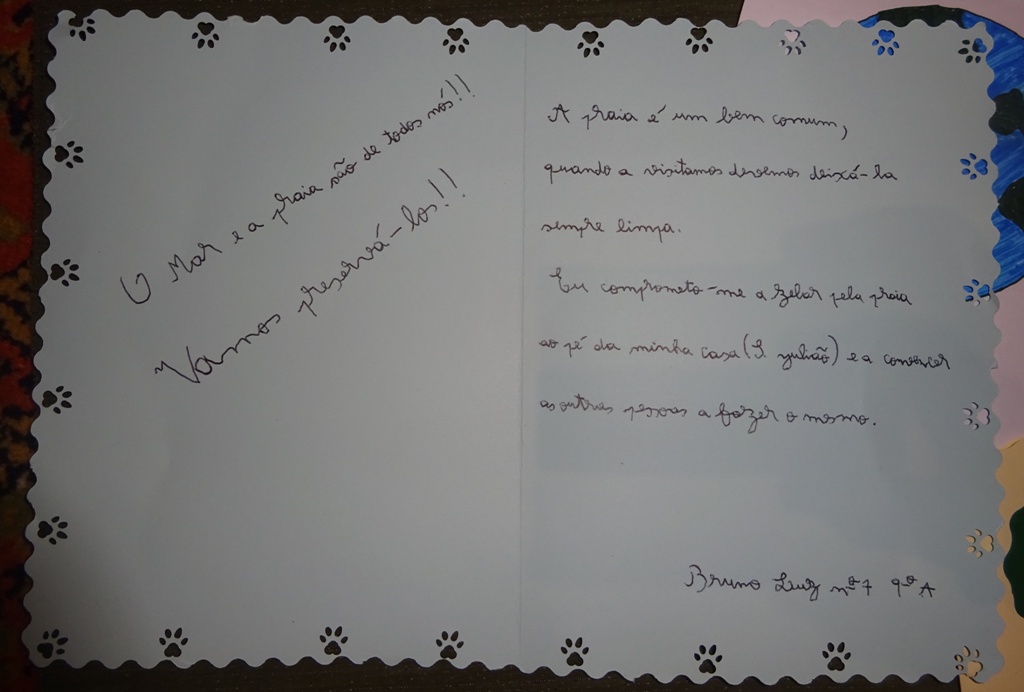 O Mar e a praia são de todos nós!!
Vamos preservá-los!!
A praia é um bem comum,
quando a visitamos devemos deixá-la
sempre limpa.
Eu comprometo-me a zelar pela praia
ao pé da minha casa (S. Julião) e a convencer
as outras pessoas a fazer o mesmo.
Bruno Luiz nº7 9º A